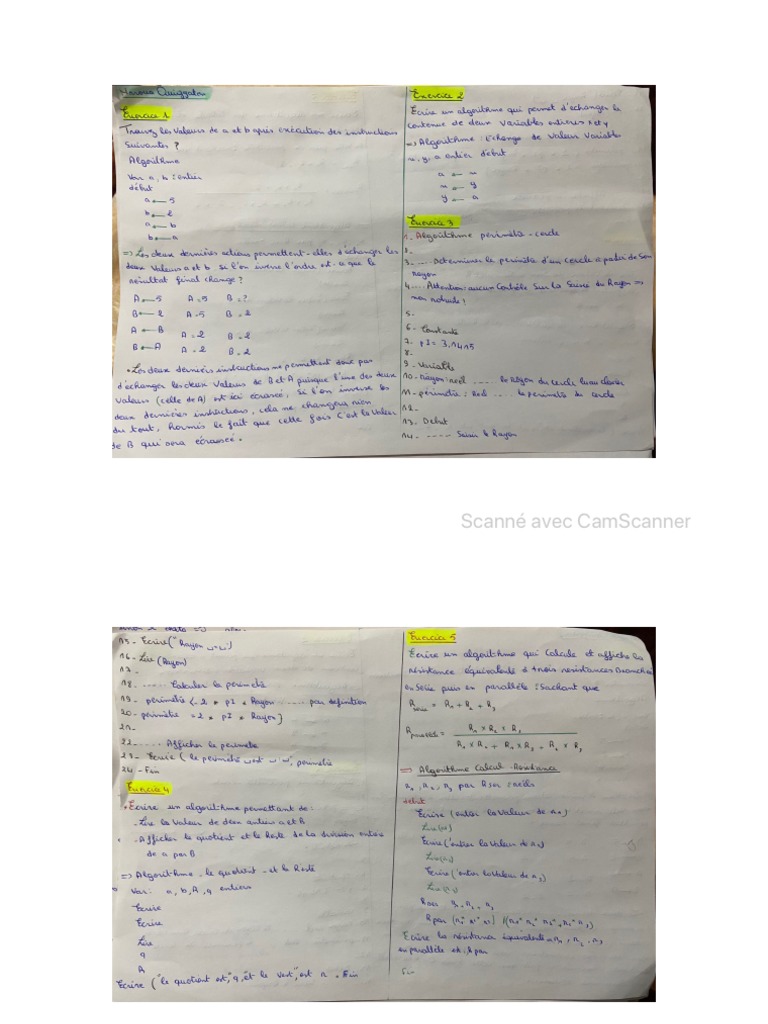 Exercice 1
Trouvez les valeurs de a et b après exécution des instructions
suivantes ?
Algorithme
Var a, b : entier
début
a ← 5
b ← 2
a ← b
b ← a
=> Les deux dernières actions permettent-elles d'échanger les
deux valeurs a et b si l'on inverse l'ordre est-a que le
résultat final change ?
A ← 5 A = 5 B = ?
B ← 2 A = 5 B = 2
A ← B A = 2 B = 2
B ← A A = 2 B = 2
• Les deux dernières instructions ne permettent donc pas
d'échanger les deux valeurs de B et A puisque l'une des deux
valeurs (celle de A) est ici écrasée, si l'on inverse les
deux dernières instructions, cela ne changera rien
du tout, hormis le fait que cette fois c'est la valeur
de B qui sera écrasée.
Exercice 2
Ecrire un algorithme qui permet d'échanger le
contenue de deux variables entieres x et y
=> Algorithme : L'échange de valeur variables
x, y, a entier début
a ← x
x ← y
y ← a
Exercice 3
1 - Algorithme périmètre - cercle
2 -
3 .... Determiner le périmètre d'un cercle a patir de son
rayon
4 .... Attention : aucun Contrôle sur la saisie du Rayon =>
5 -
6 - Constante
7 - pI = 3,1415
8 -
9 - Variable
10 - Rayon : reel ..... le Rayon du cercle
11 - périmètre : Reel .... le périmètre du cercle
12 -
13 - Debut
14 - ..... Saisir le Rayon
Scanné avec CamScanner
15 - Ecrire ("Rayon
16 - Lire (Rayon)
17 -
18 ...... Calculer le périmètre
19 - périmètre (- 2 * pI * Rayon ...... par definition
20 - périmètre = 2 * pI * Rayon)
21 -
22 ....... Afficher le périmètre
23 - Ecrire ( le périmètre est périmétre
24 - Fin
Exercice 4
• Ecrire un algorithme permettant de :
- Lire la valeur de deux entiers a et B
- Afficher le quotient et le Reste de la division entière
de a par B
=> Algorithme - le quotient - et la Reste
Var : a, b, A, q entiers
Ecrire
Ecrire
Lire
q
A
Ecrire ("le quotient est," q, et le est r . Fin
Exercice 5
Ecrire un algorithme qui Calcule et affiche la
résistance équivalente à trois resistances Branchées
en série puis en parallèle : Sachant que
R série = R1 + R2 + R3
R parallèle = R1 x R2 x R3
R1 x R2 + R1 x R3 + R2 x R3
Algorithme Calcul - Resistance
R1, R2, R3 par Rser : réels
début
Ecrire (entrer la valeur de r1)
Lire(r1)
Ecrire ('entrer la valeur de r2)
Lire(r2)
Ecrire ('entrer la valeur de r3)
Lire(r3)
Ecrire la résistance équivalente a r1, r2, r3
en parallèle et : R par
Fin